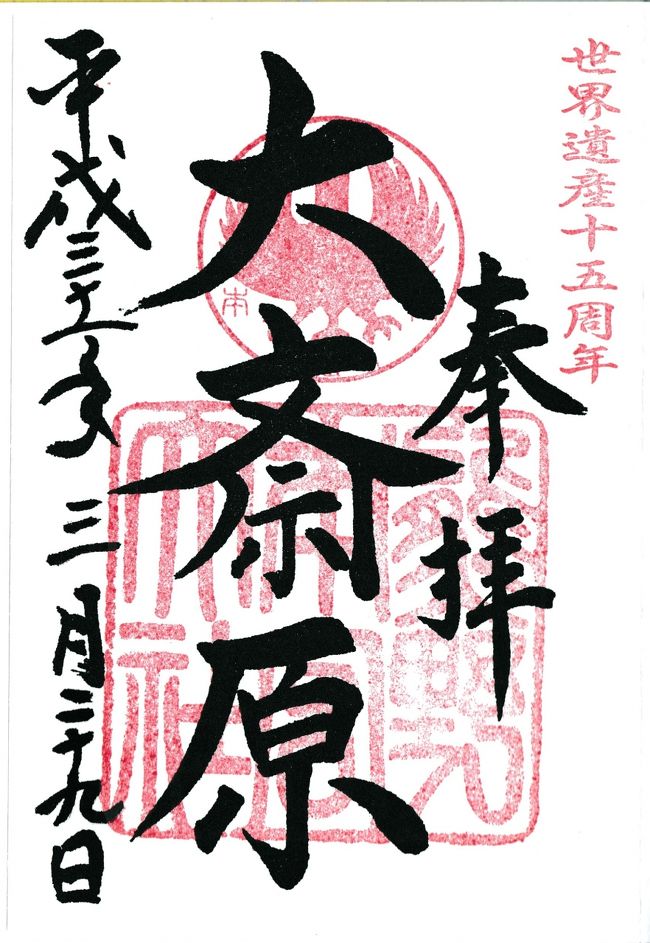 世界遺産十五周年
奉拝
大斎原
本
平成三十一年三月二十九日